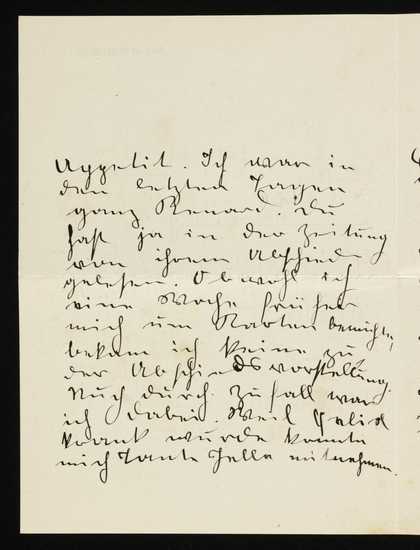 Appetit. Ich war in
den letzten Tagen
ganz Renard. Du
hast ja in der Zeitung
von ihrem Abschied
gelesen. Obwohl ich
eine Woche früher
mich um Karten bemühte,
bekam ich keine zu
der Abschiedsvorstellung.
Nur durch Zufall war
ich dabei. Weil
krank wurde konnte
mich Tante Jella mitnehmen.